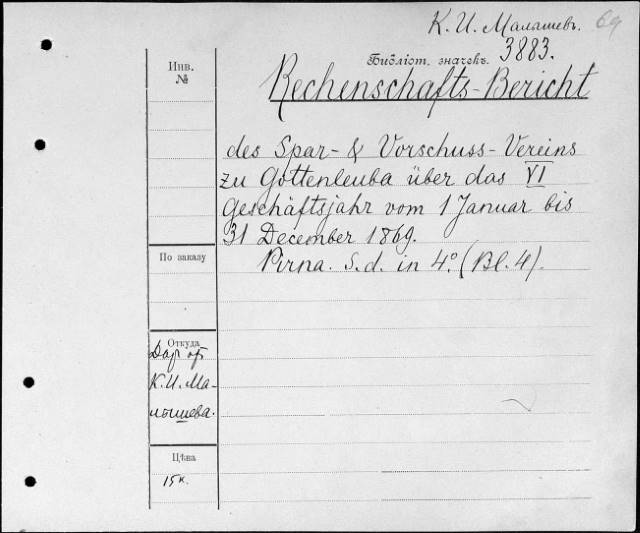 К. И. Малышевъ. 69
Библіот. значекъ. 3883.
Инв.
№
Rechenschafts-Bericht
des Spar- & Vorschuss-Vereins
zu Gottenleuba über das VI
Geschäftsjahr vom 1 Januar bis
31 December 1869.
Pirna. S.d. in 4º. (Bl. 4).
По заказу
Откуда
Дар от
К. И. Ма-
лышева.
Цѣна
15 к.